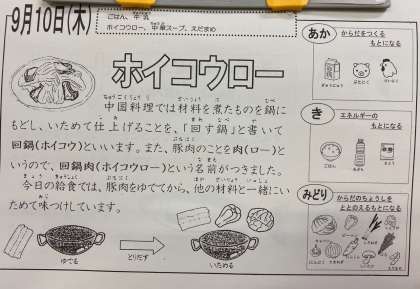 9月10日(木)
ごはん、牛乳
ホイコウロー、中華スープ、えだまめ
ホイコウロー
中国料理では材料を煮たものを鍋に
もどし、いためて仕上げることを、「回す鍋」と書いて
回鍋(ホイコウ)といいます。また、豚肉のことを肉(ロー)と
いうので、回鍋肉(ホイコウロー)という名前がつきました。
今日の給食では、豚肉をゆでてから、他の材料と一緒にい
ためて味つけしています。
ゆでる
とりだす
いためる
あか
からだをつくる
もとになる
ぎゅうにゅう
ぶたにく
き
エネルギーの
もとになる
みどり
からだのちょうしを
ととのえるもとになる